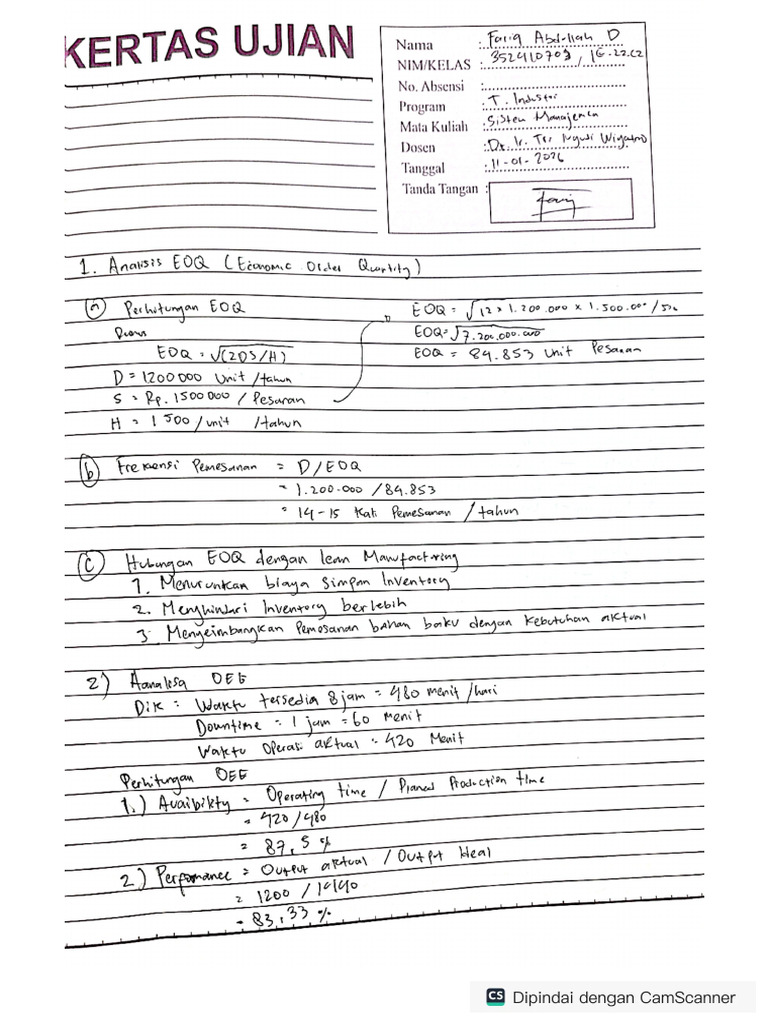 KERTAS UJIAN
Nama : Fariq Abdillah D
NIM/KELAS : 352410709, IG.22.C2
No. Absensi :
Program : T. Industri
Mata Kuliah : Sistem Manajemen
Dosen : Dr. Ir. Tri Ngudi Wiyatno
Tanggal : 11-01-2026
Tanda Tangan :
1. Analisis EOQ (Economic Order Quantity)
a) Perhitungan EOQ
Rumus
EOQ = √(2DS/H)
D = 1200000 Unit /tahun
S = Rp. 1500000 / Pesanan
H = 1500 /unit /tahun
EOQ = √(2 x 1.200.000 x 1.500.000 /500
EOQ = √7.200.000.000
EOQ = 84.853 Unit Pesanan
b) Frekuensi Pemesanan = D/EOQ
= 1.200.000 /84.853
= 14-15 Kali Pemesanan / tahun
c) Hubungan EOQ dengan lean Manufactoring
1. Menurunkan biaya simpan Inventory
2. Menghindari Inventory berlebih
3. Menyeimbangkan Pemesanan bahan baku dengan Kebutuhan aktual
2) Aanalisa OEE
Dik : Waktu tersedia 8 jam = 480 menit /hari
Downtime = 1 jam = 60 Menit
Waktu Operasi aktual = 420 Menit
Perhitungan OEE
1.) Avaibility = Operating time / Planed Production time
= 420/480
= 87,5 %
2) Perfomance = Output aktual / Output Ideal
= 1200 / 1440
= 83,33 %
CS Dipindai dengan CamScanner